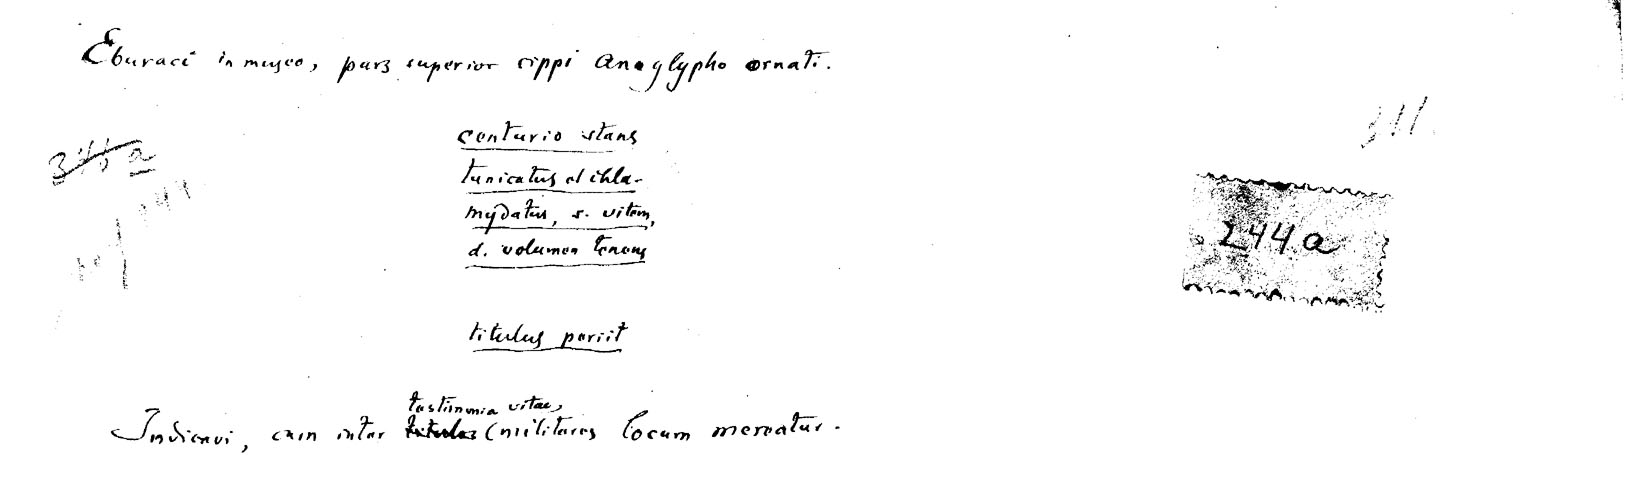 Eburaci in museo, pars superior cippi anaglypho ornati.
311.
centurio stans
tunicatus et chla-
mydatus, s. vitem,
d. volumen tenens
244 a
titulus periit
testimonia vitae,
Indicavi, cum inter titulos militares locum mereatur.